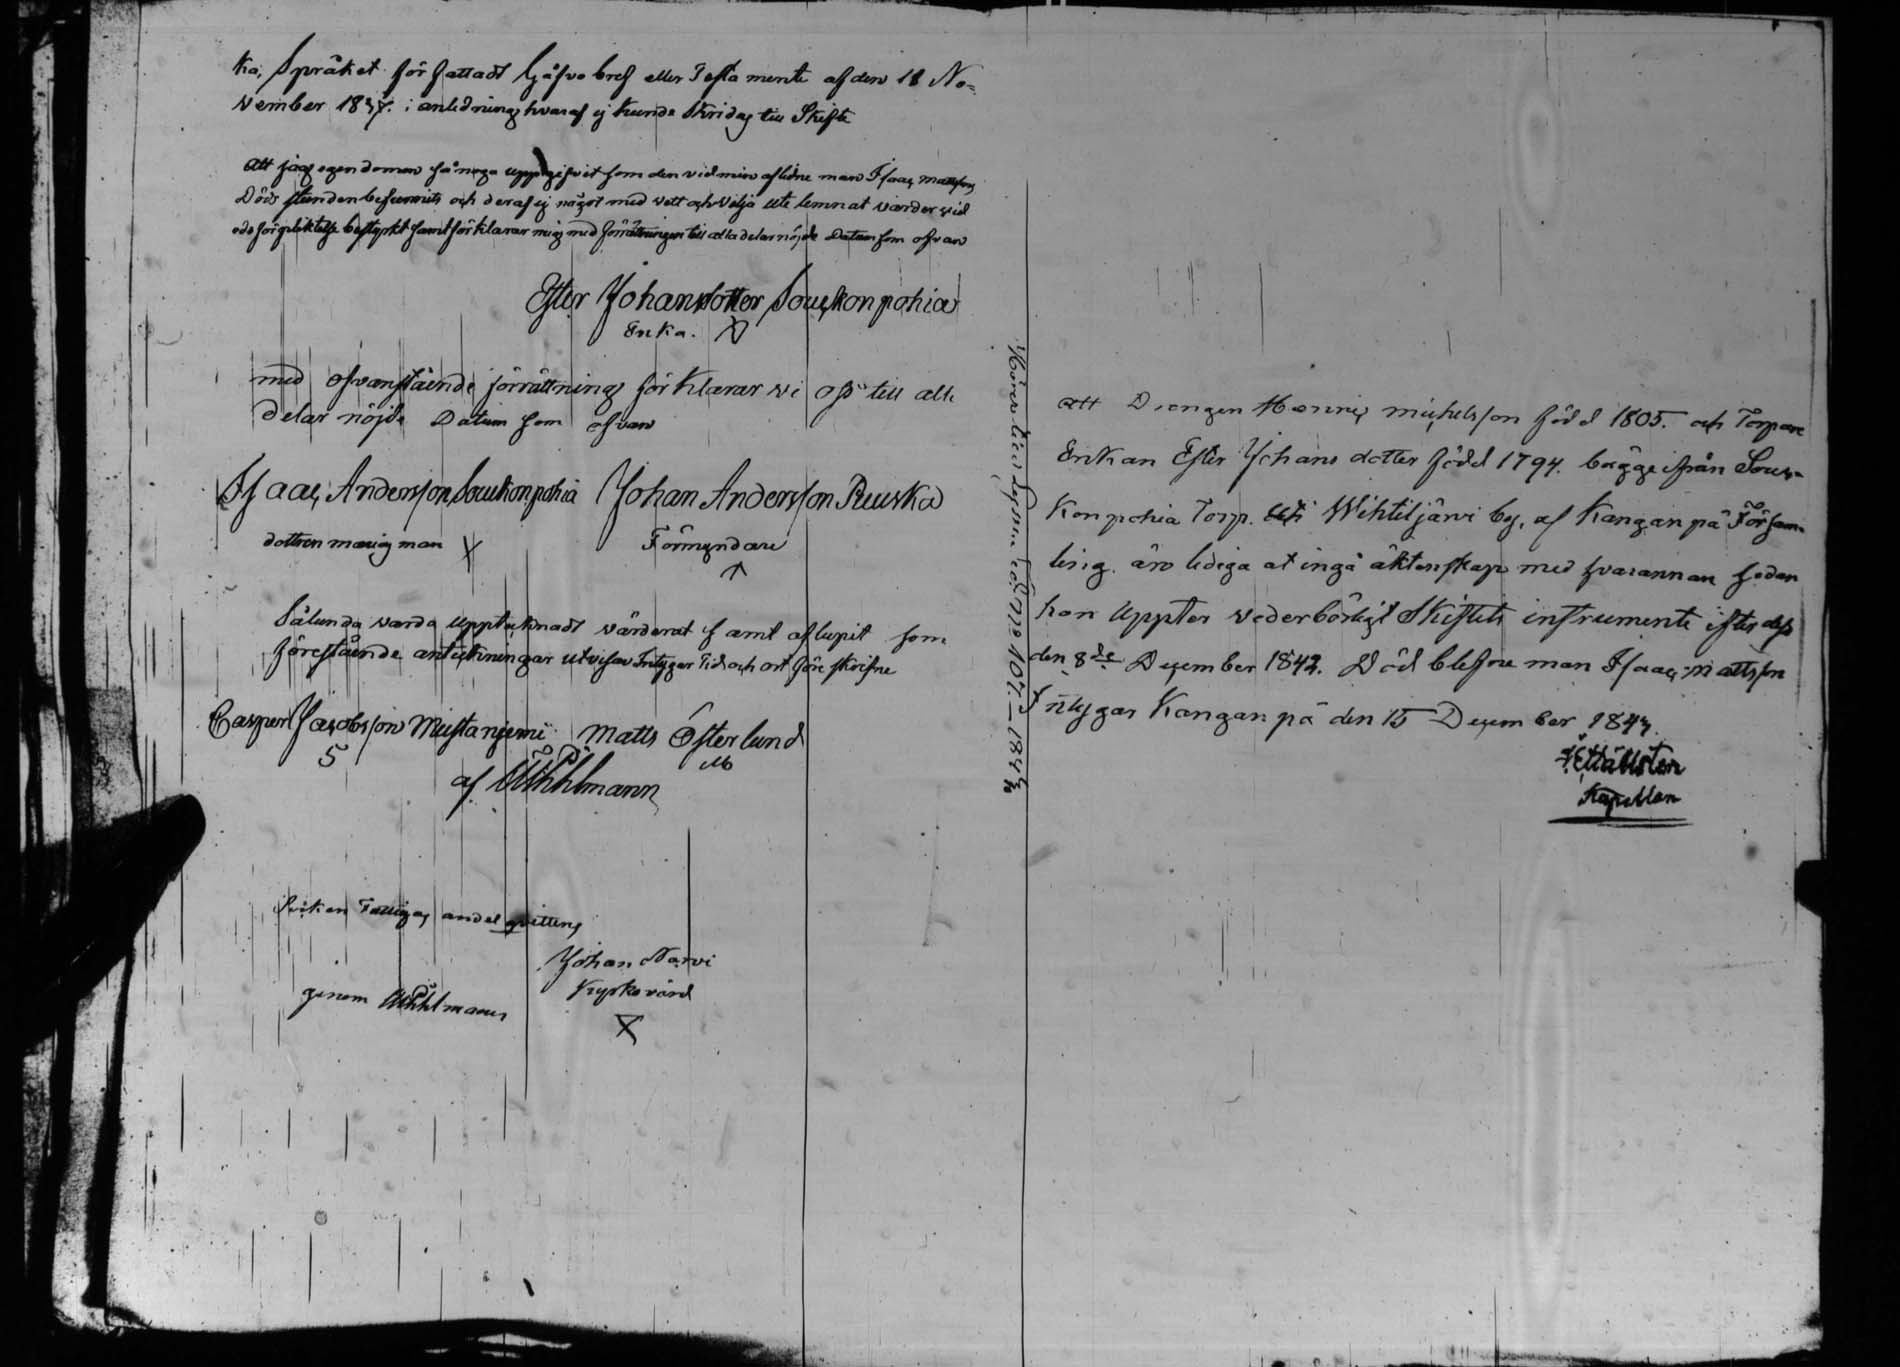 ka, Språket för fattadt Gåfvo bref eller Testamente af den 18 No=
vember 1837. i anledning hvaraf ej kunde Skridas till Skifte
Att jag egendomen så noga uppgifvit som den vid min aflidne man Isaac Mattsons
Döds stunden befunnits och deraf ej något med vett och vilja ute lemnat varder vid
eds förpliktelse bestyrkt samt förklarar mig med förrättningen till alla delar nöjde Datum som ofvan
Ester Johansdotter Souckonpohia
Enka. X
med ofvanstående förrättning förklarar vi oss till alla
delar nöjde Datum som ofvan
Isaac Andersson Souckonpohia Johan Andersson Ruuska
dottren mans man X Förmyndare
Sålunda varda upptecknadt värderat samt aflupit som
förestående anteckningar utvisar Intygar Tid och ort före skrifne
Casper Jacobsson Mustaniemi Matts Österlund
af Wihlmann
Socken Fattigas andel qvitteras
Johan Narvi
Kyrkovärd
X
genom Wihlmann
att Drengen Hennric Michelsson född 1805. och Torpare
Enkan Ester Johans dotter född 1794. bägge ifrån Souc-
konpohia Torp. uti Wihteljärvi by, af Kanganpä Försam-
ling. äro lediga at ingå äktenskap med hvarannan sedan
hon uppter vederbörligt Skiftets instrumente efter dess
den 8de December 1842. Död blefne man Isaac Mattsson
Intygar Kanganpä den 15 December 1843.
Hällsten
Kapellan